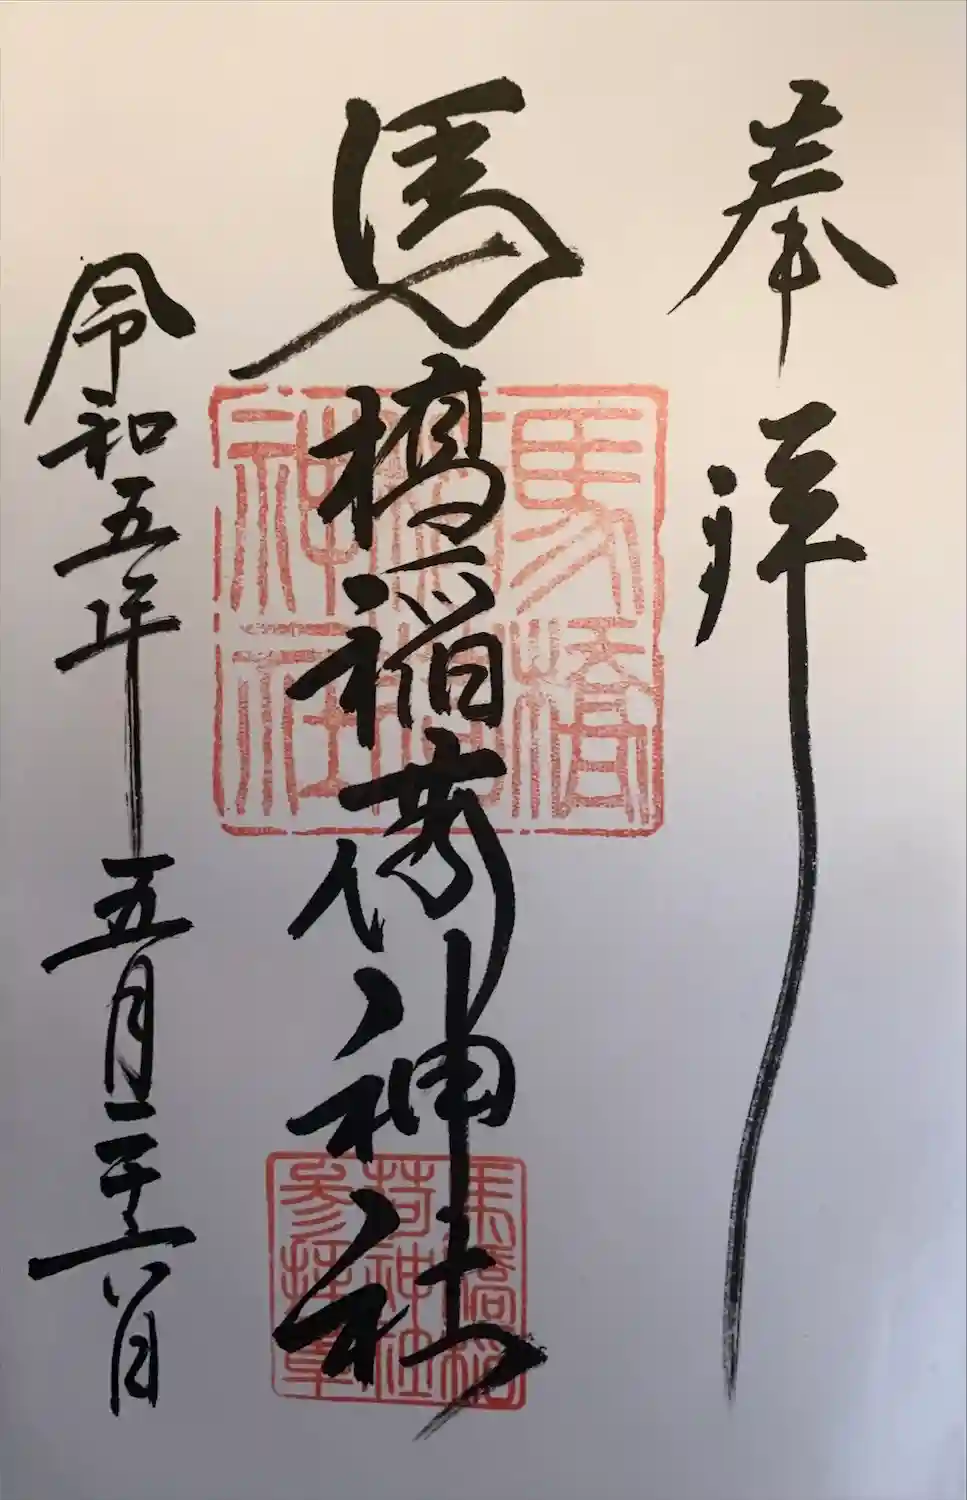 奉拝
馬橋稲荷神社
令和五年五月二十六日
馬橋
稲荷
神社
馬橋稲
荷神社
参拝章